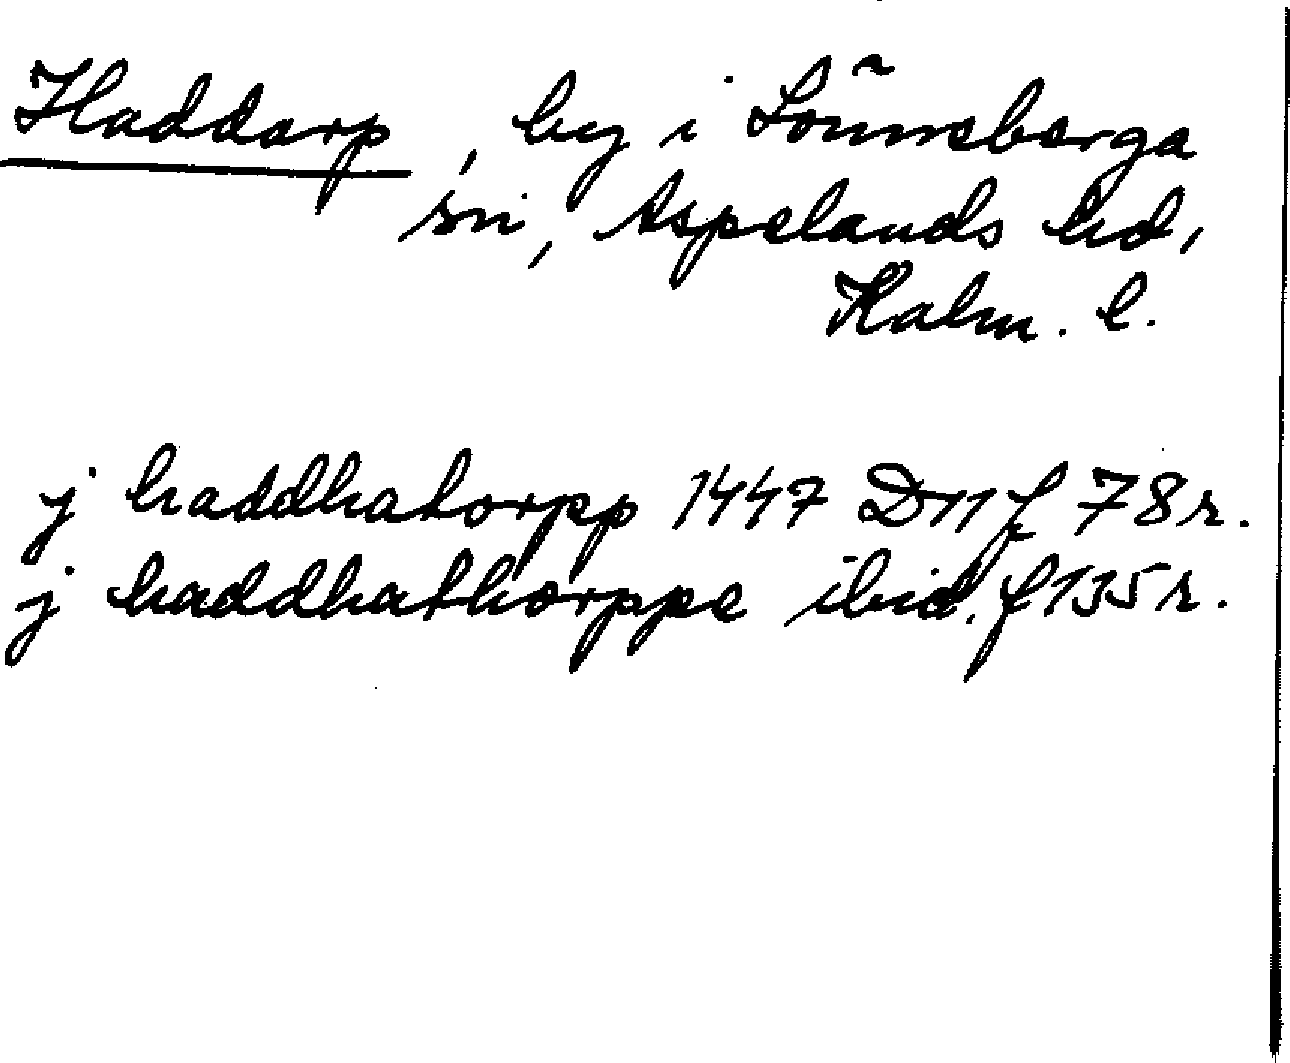 Haddarp, by i Lönneberga
sn, Aspelands hd,
Kalm. l.
j haddhatorpp 1447 D11 f 78 r.
j haddhathorppe ibid. f 135 r.